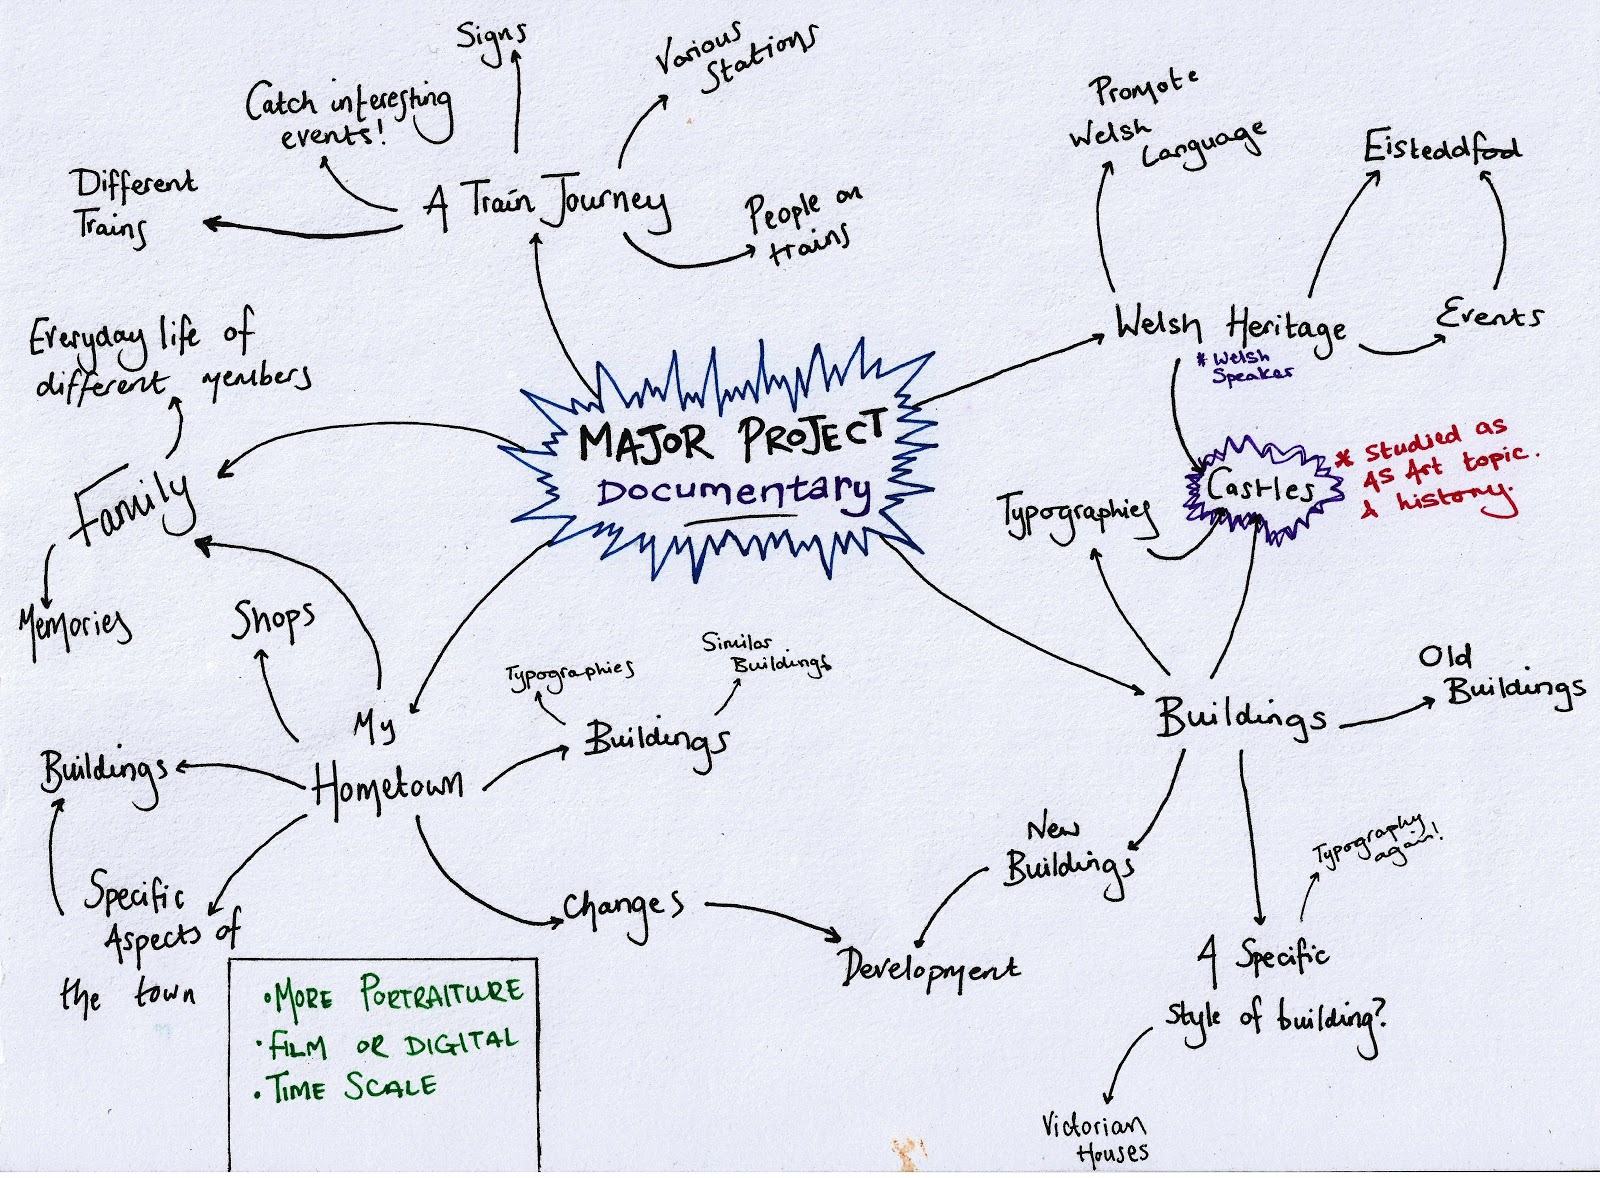 Signs
Various
Stations
Catch interesting
events!
Different
Trains
A Train Journey
People on
trains
Promote
Welsh
Language
Eisteddfod
Welsh Heritage
Events
* Welsh
Speaker
Everyday life of
different members
MAJOR PROJECT
Documentary
Family
Memories
Castles
* Studied as
AS Art topic.
& history.
Typographies
Shops
My
Hometown
Typographies
Similar
Buildings
Buildings
Buildings
Old
Buildings
Buildings
Specific
Aspects of
the town
Changes
Development
New
Buildings
Typography
again!
A Specific
style of building?
Victorian
Houses
• MORE PORTRAITURE
• FILM OR DIGITAL
• TIME SCALE